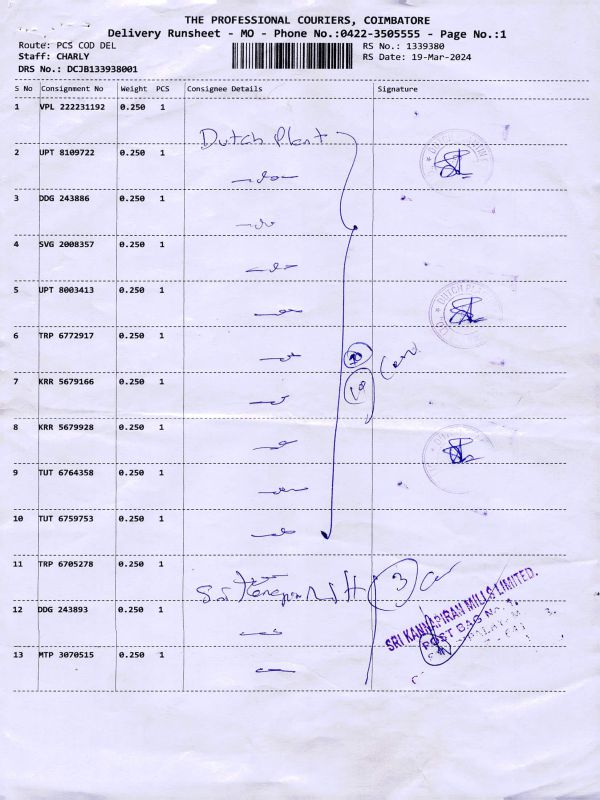 THE PROFESSIONAL COURIERS, COIMBATORE
Delivery Runsheet - MO - Phone No.:0422-3505555 - Page No.:1
Route: PCS COD DEL RS No.: 1339380
Staff: CHARLY RS Date: 19-Mar-2024
DRS No.: DCJB133938001
S No Consignment No Weight PCS Consignee Details Signature
1 VPL 222231192 0.250 1
Dutch Plant
2 UPT 8109722 0.250 1
3 DDG 243886 0.250 1
4 SVG 2008357 0.250 1
5 UPT 8003413 0.250 1
DUTCH
6 TRP 6772917 0.250 1
10
7 KRR 5679166 0.250 1
8 KRR 5679928 0.250 1
9 TUT 6764358 0.250 1
10 TUT 6759753 0.250 1
11 TRP 6705278 0.250 1
3
SRI KANNAPIRAN MILLS LIMITED.
POST BAG No.
12 DDG 243893 0.250 1
13 MTP 3070515 0.250 1